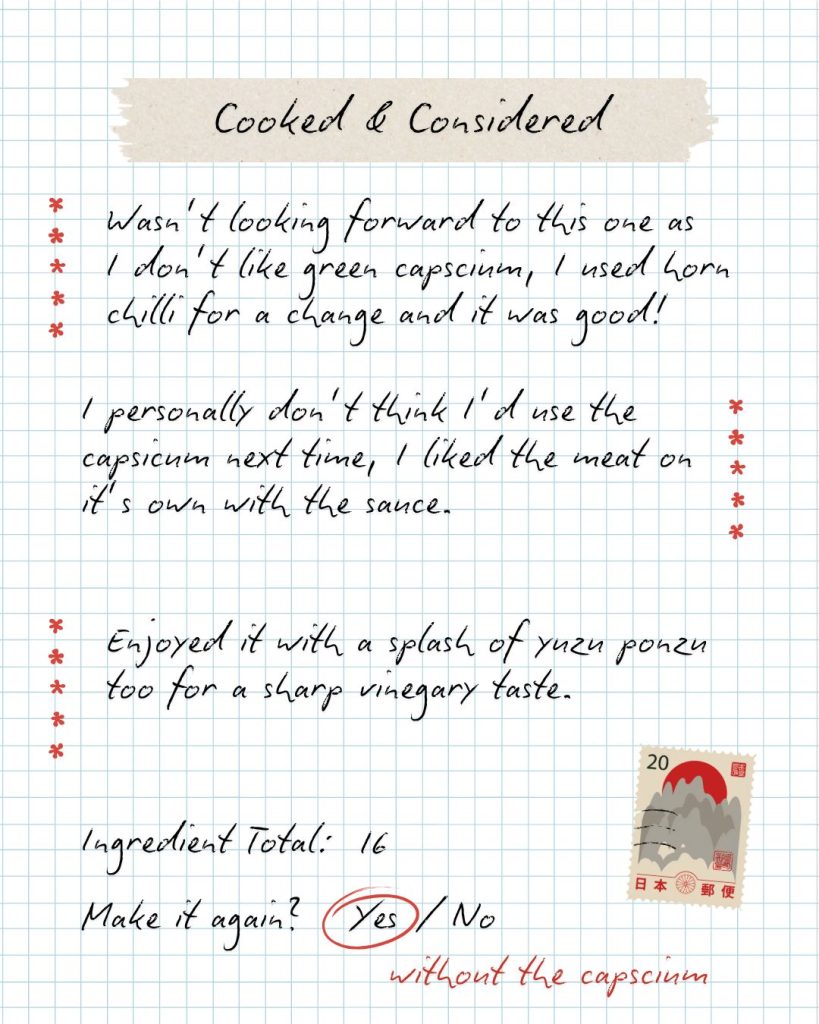 Cooked & Considered
Wasn't looking forward to this one as
I don't like green capscium, I used horn
chilli for a change and it was good!
I personally don't think I'd use the
capsicum next time, I liked the meat on
it's own with the sauce.
Enjoyed it with a splash of yuzu ponzu
too for a sharp vinegary taste.
20
日本郵便
Ingredient Total: 16
Make it again? Yes / No
without the capscium